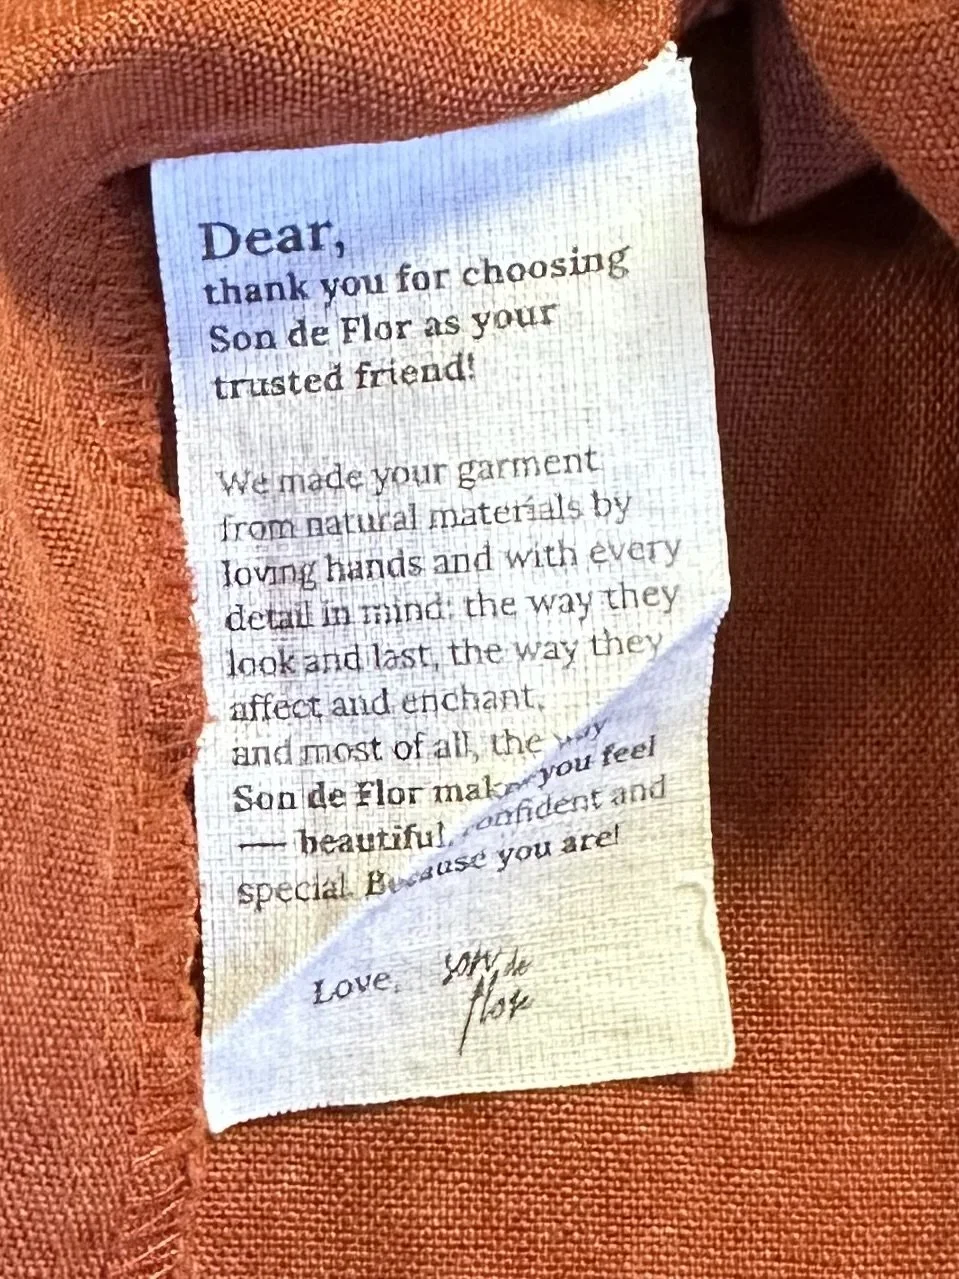 Dear,
thank you for choosing
Son de Flor as your
trusted friend!
We made your garment
from natural materials by
loving hands and with every
detail in mind: the way they
look and last, the way they
affect and enchant,
and most of all, the way
Son de Flor makes you feel
— beautiful, confident and
special. Because you are!
Love, son de
flor